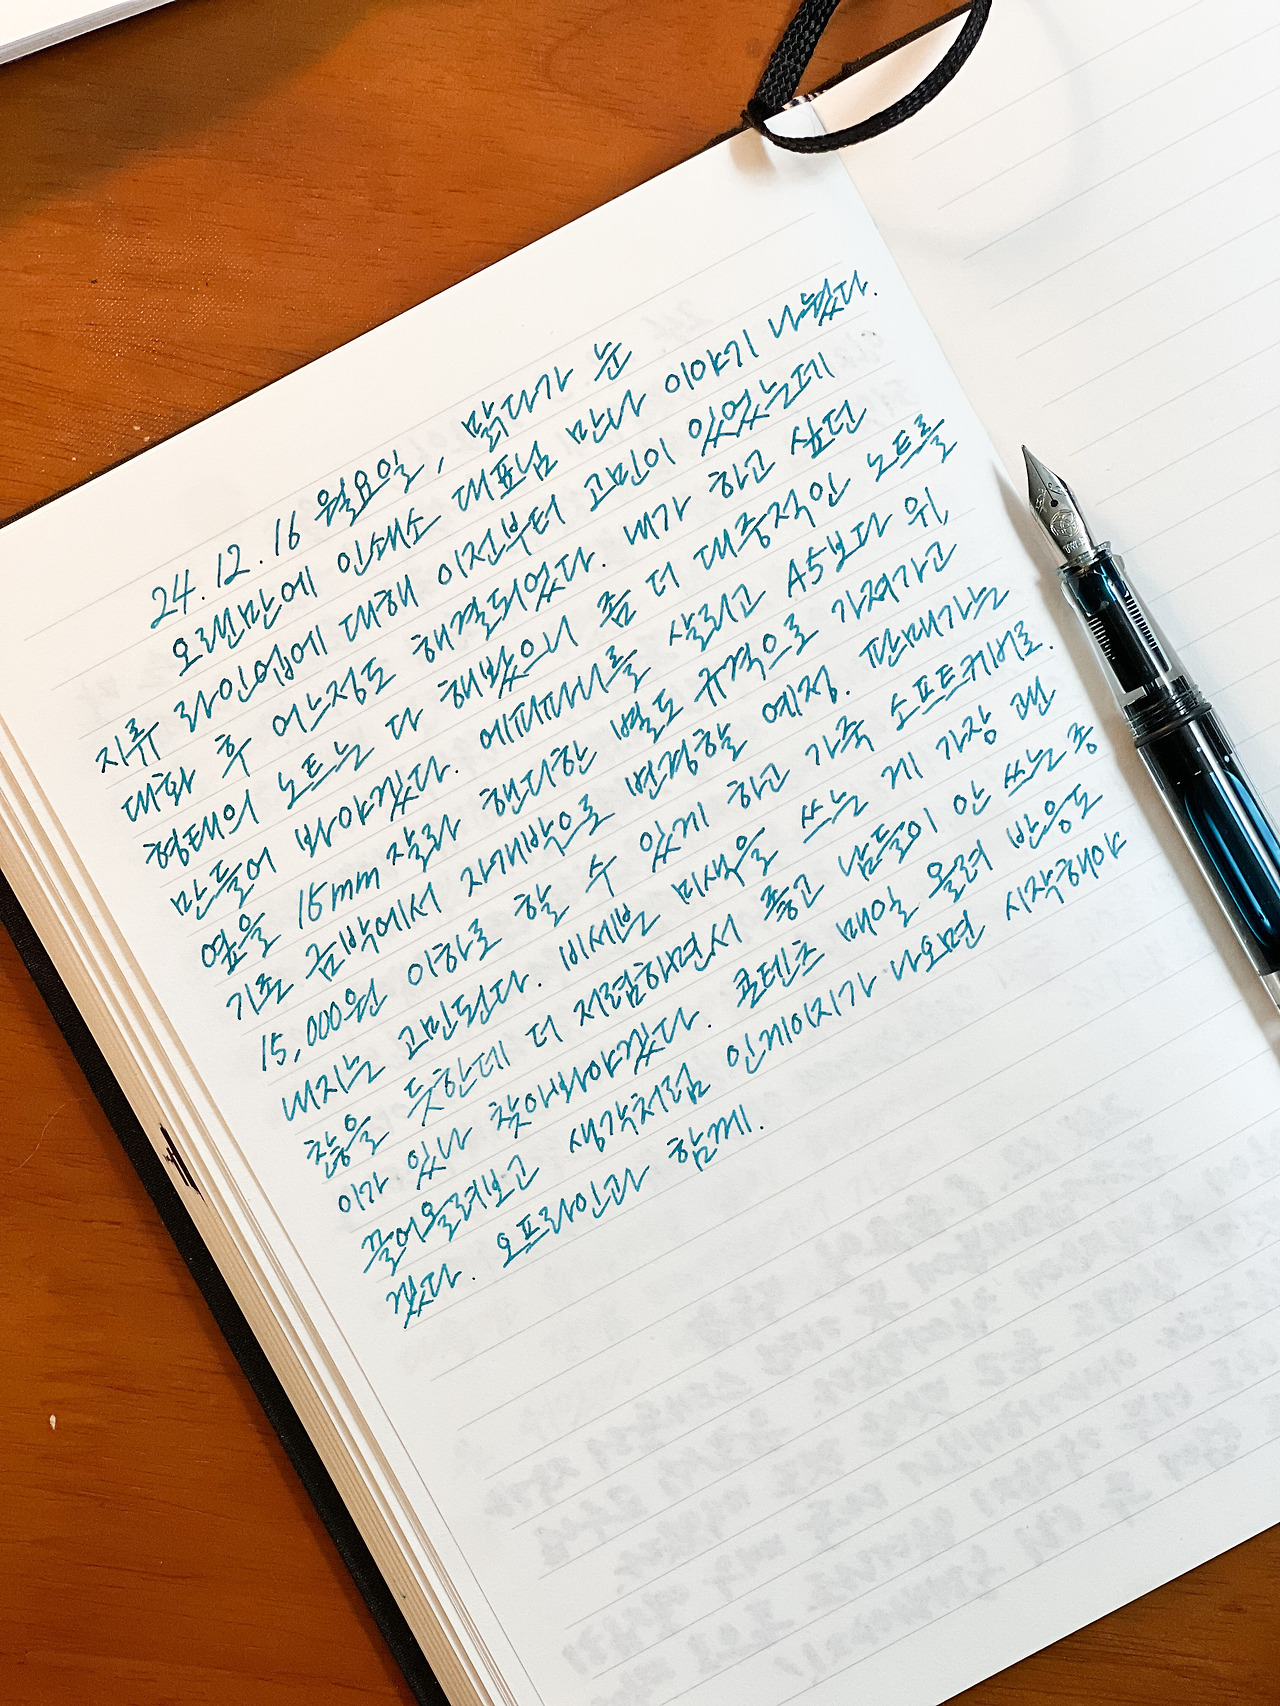 24. 12. 16 월요일, 맑다가 눈
오랜만에 인쇄소 대표님 만나 이야기 나눴다.
지류 라인업에 대해 이전부터 고민이 있었는데
대화 후 어느정도 해결되었다. 내가 하고 싶던
형태의 노트는 다 해봤으니 좀 더 대중적인 노트를
만들어 봐야겠다. 에피파니를 살리고 A5보다 위,
옆을 15mm 잘라 핸디한 별도 규격으로 가져가고
기존 금박에서 자개박으로 변경할 예정. 판매가는
15,000원 이하로 할 수 있게 하고 가죽 소프트커버로.
내지는 고민된다. 비세븐 미색을 쓰는 게 가장 괜
찮을 듯한데 더 저렴하면서 좋고 남들이 안 쓰는 종
이가 있나 찾아봐야겠다. 콘텐츠 매일 올려 반응도
끌어올려보고 생각처럼 인게이지가 나오면 시작해야
겠다. 오프라인과 함께.